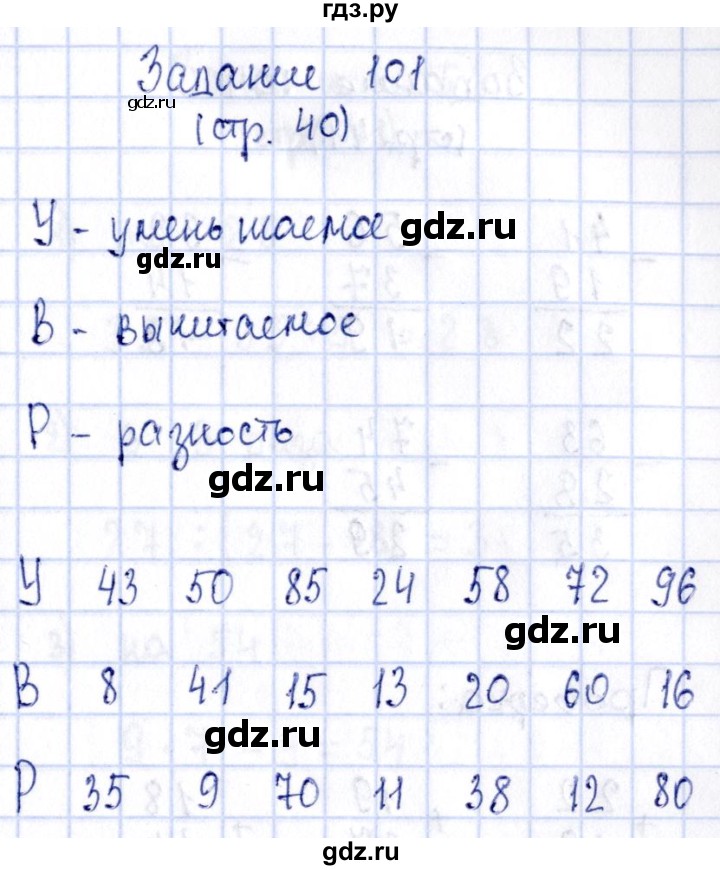 гдз.ру
Задание 101
gdz.ru
(стр. 40)
У - уменьшаемое gdz.ru
gdz.ru
В - вычитаемое
Р - разность
gdz.ru
У 43 50 85 24 58 72 96
gdz.ru
В 8 41 15 13 20 60 16
gdz.ru
Р 35 9 70 11 38 12 80
gdz.ru